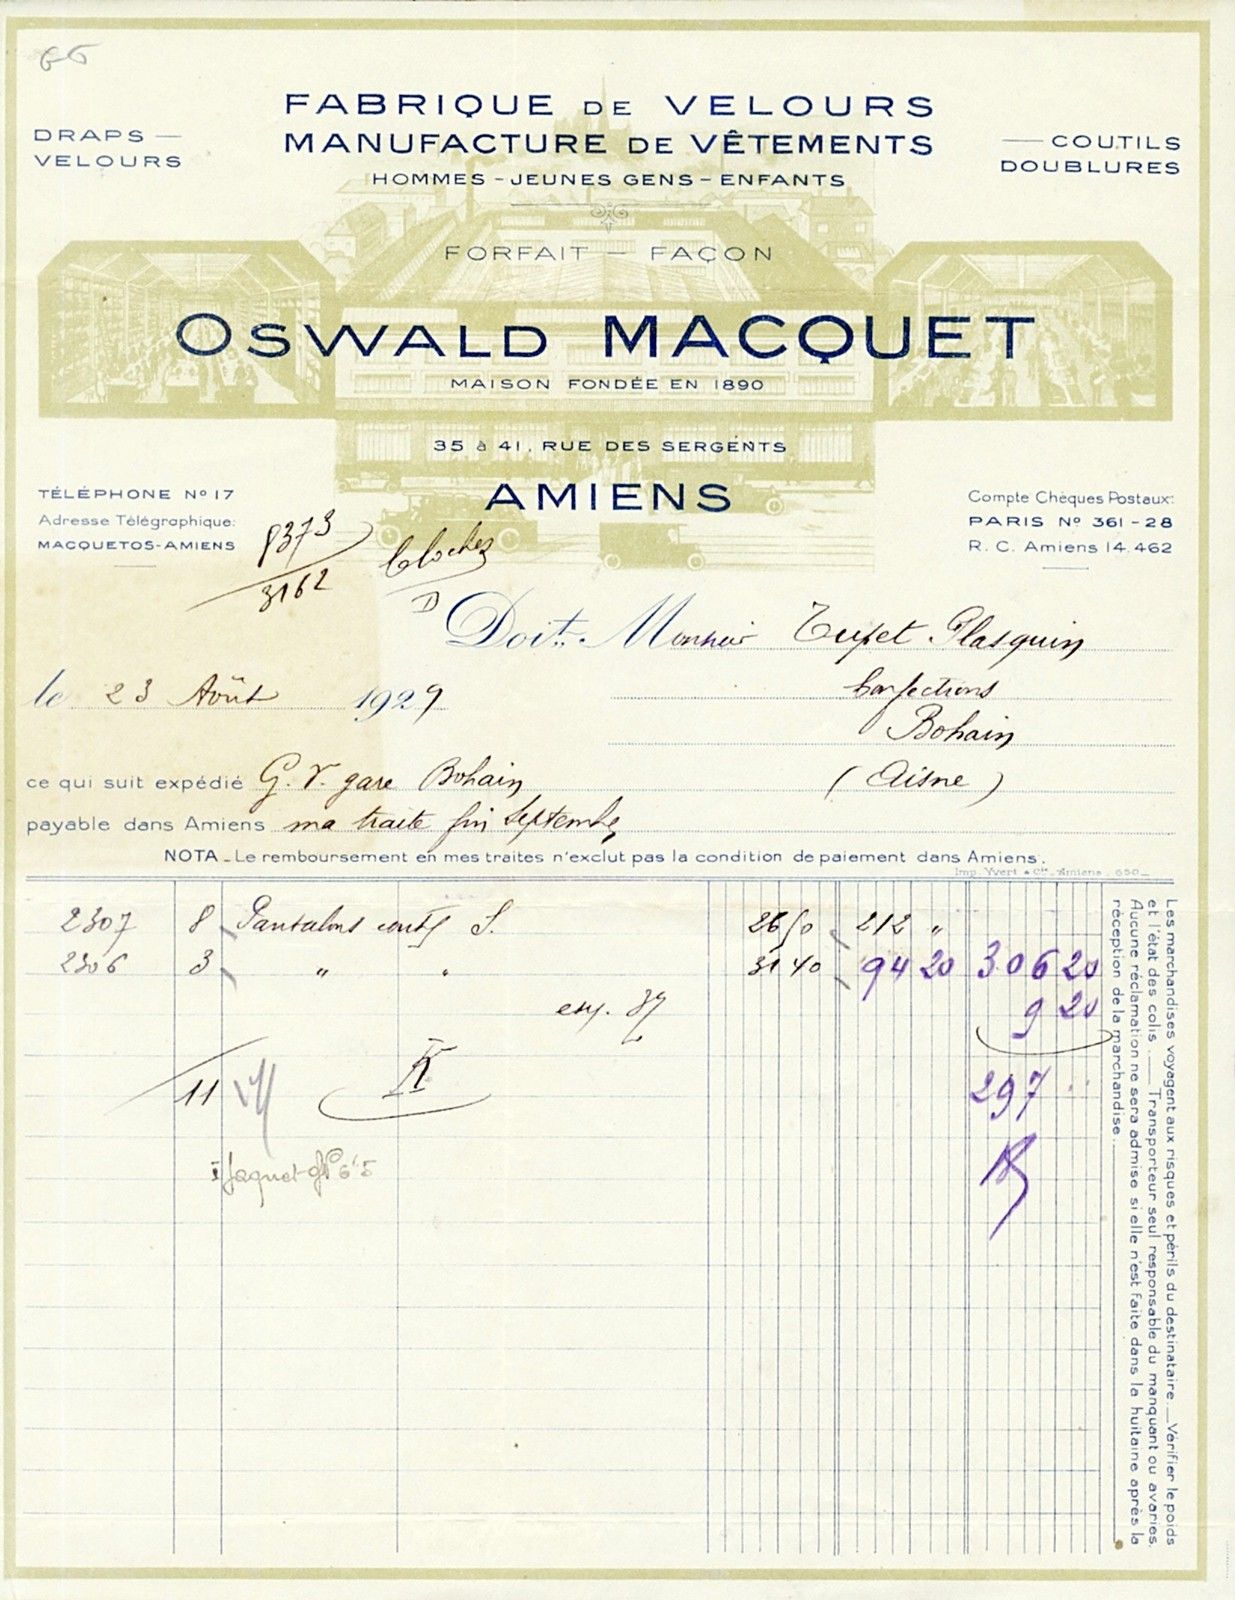 FABRIQUE DE VELOURS
MANUFACTURE DE VÊTEMENTS
HOMMES - JEUNES GENS - ENFANTS
DRAPS —
VELOURS
— COUTILS
DOUBLURES
FORFAIT — FAÇON
OSWALD MACQUET
MAISON FONDÉE EN 1890
35 à 41, RUE DES SERGENTS
AMIENS
TÉLÉPHONE No 17
Adresse Télégraphique:
MACQUETOS-AMIENS
Compte Chèques Postaux:
PARIS No 361-28
R. C. Amiens 14.462
8373
3162
Cloches
D
Doit Monsieur Tupet Plasquin
Confections
le 23 Août 1929
Bohain
(Aisne)
ce qui suit expédié G. V. gare Bohain
payable dans Amiens ma traite fin Septembre
NOTA _ Le remboursement en mes traites n'exclut pas la condition de paiement dans Amiens.
Imp. Yvert & Cie _ Amiens . 650_
2307 8 Pantalons coutil S. 26 50 212 "
2306 3 " " 31 40 94 20 306 20
9 20
11
297
Les marchandises voyagent aux risques et périls du destinataire _ Vérifier le poids
et l'état des colis. _ Transporteur seul responsable du manquant ou avaries.
Aucune réclamation ne sera admise si elle n'est faite dans la huitaine après la
réception de la marchandise.